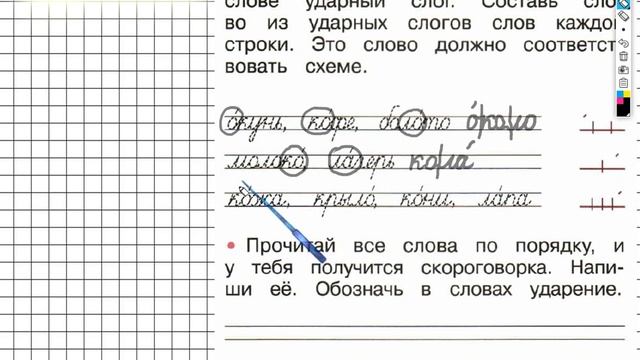 слове ударный слог. Составь сло
во из ударных слогов слов каждой
строки. Это слово должно соответст
вовать схеме.
о́кунь, ко́фе, боло́то о́коло
молоко́, ла́герь кола́
ко́жа, крыло́, ко́ни, ла́па
• Прочитай все слова по порядку, и
у тебя получится скороговорка. Напи-
ши её. Обозначь в словах ударение.